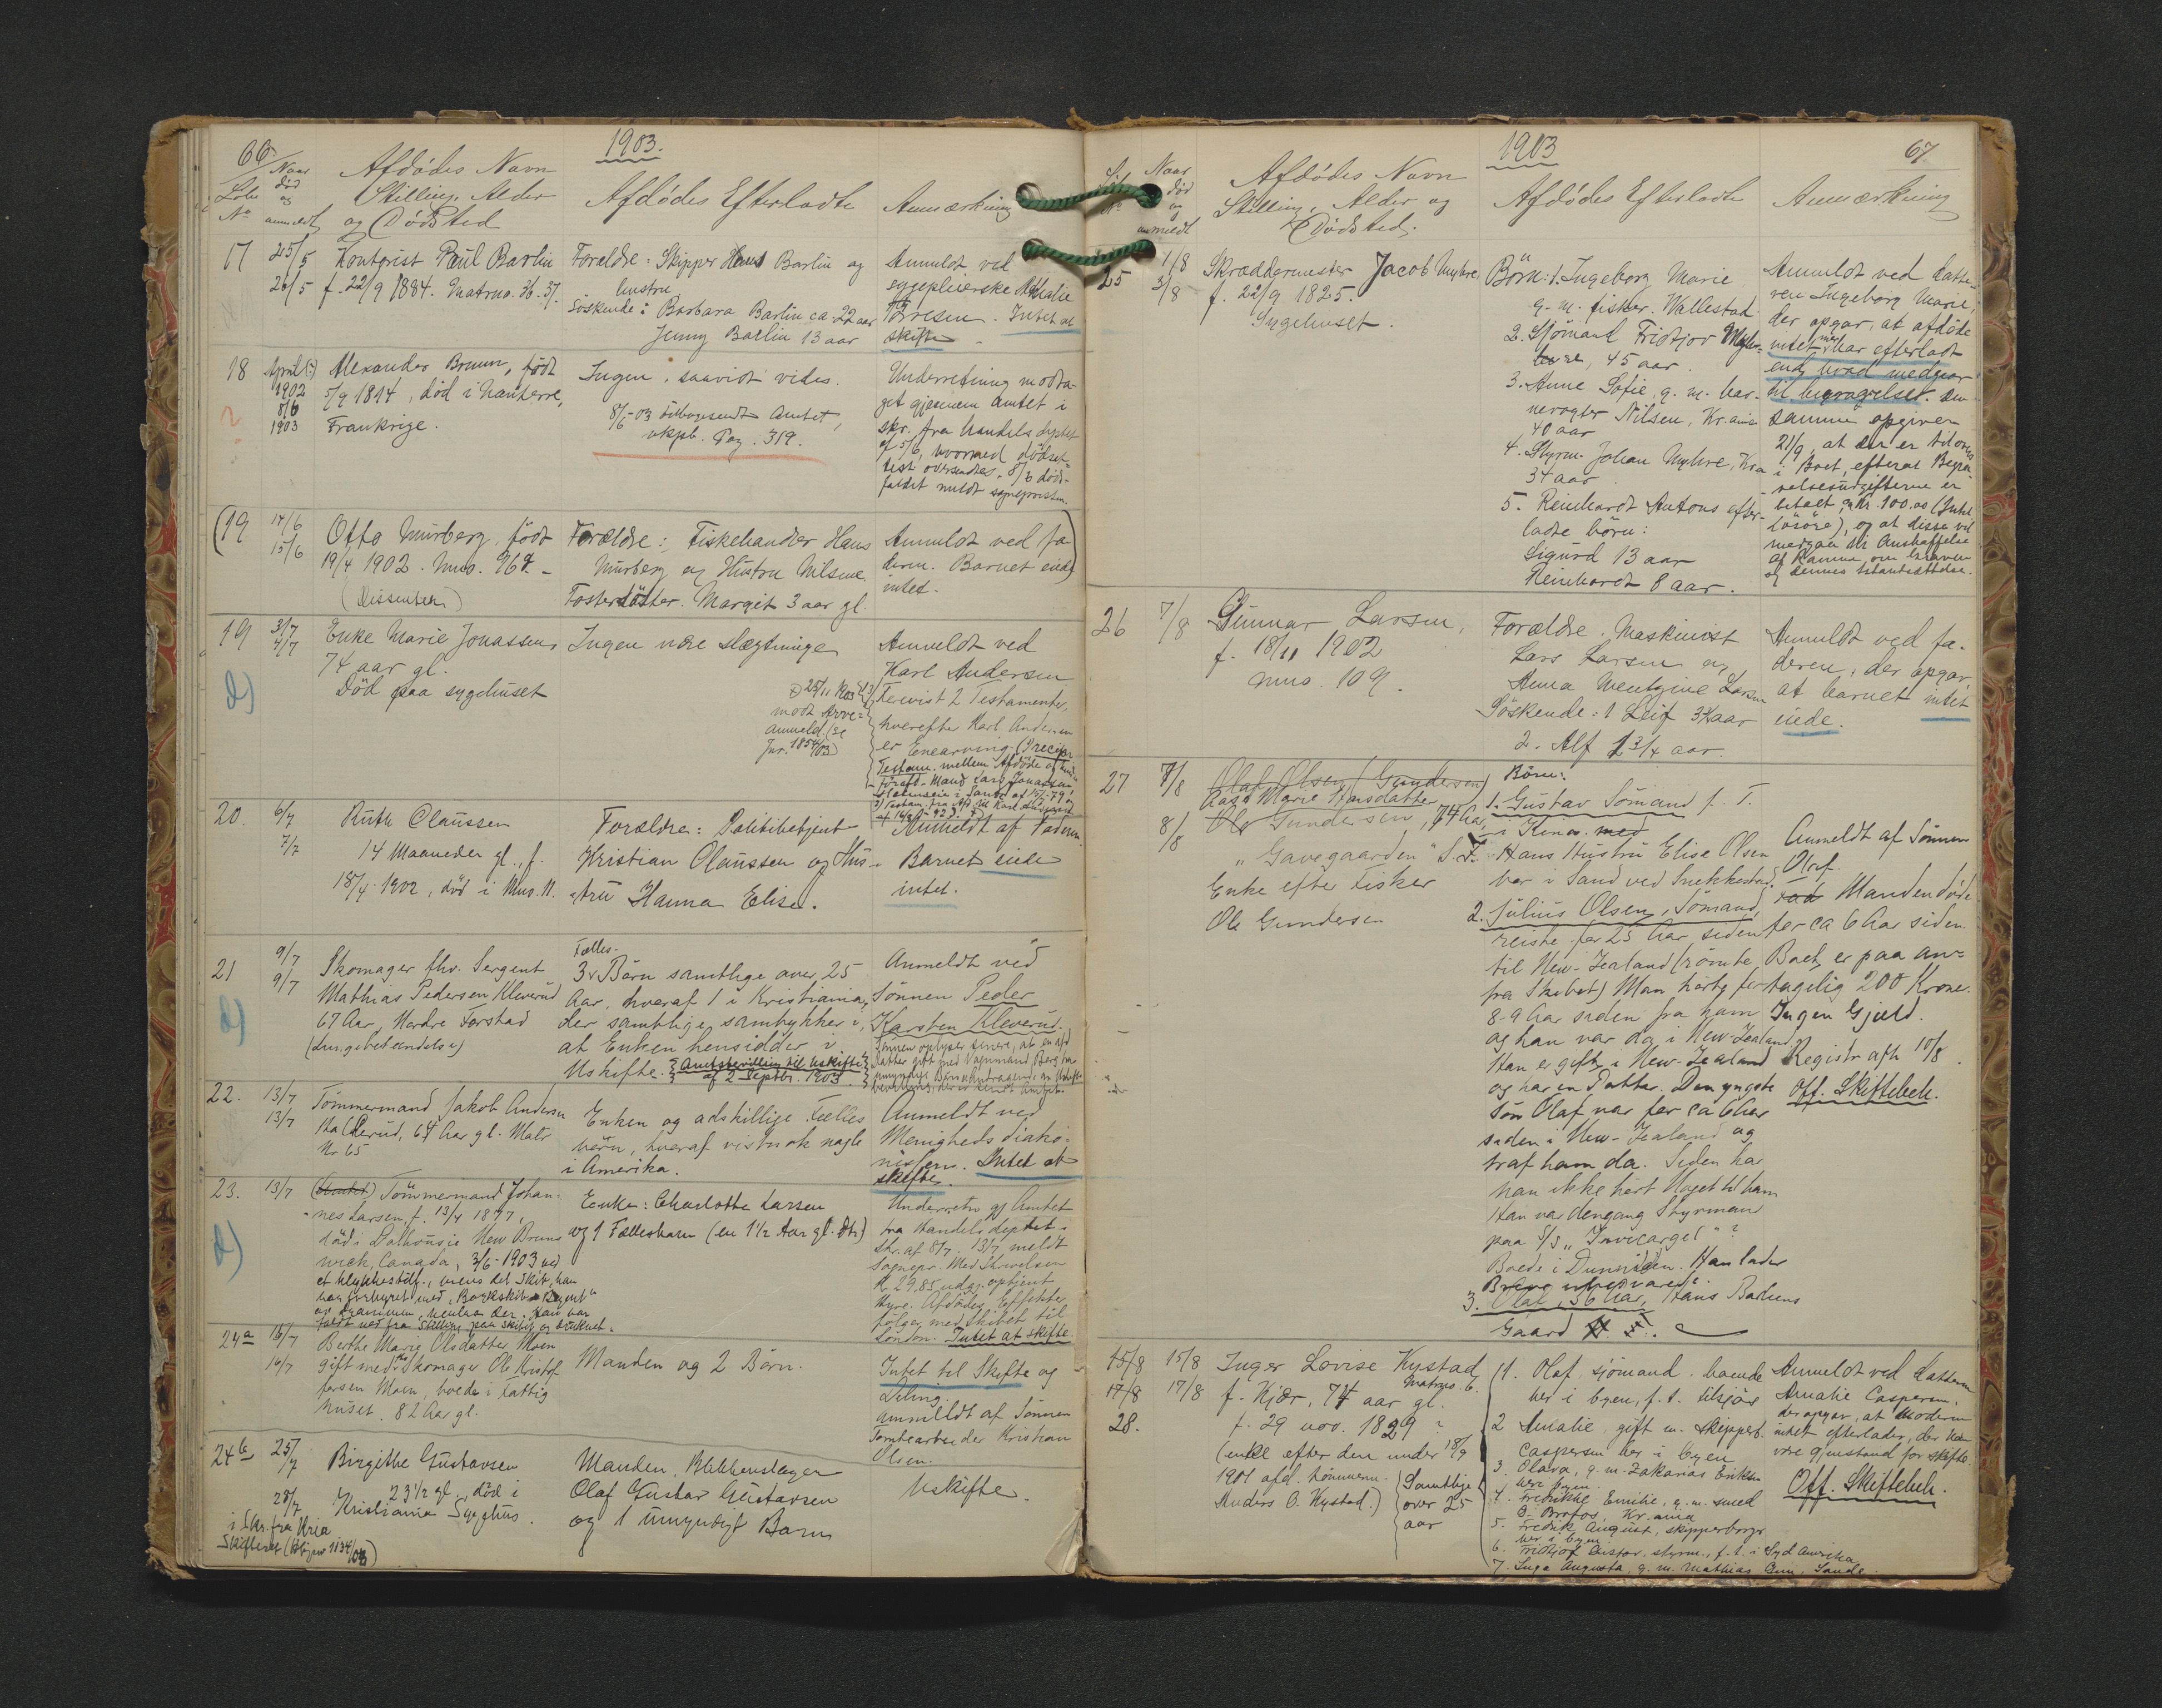 66
1903.
Løbe No
Naar død og anmeldt
Afdødes Navn
Stilling, Alder
og Dødsted
Afdødes Efterladte
Anmærkning
17
25/5
26/5
Kontorist Paul Barlin
f. 22/9 1884. Matrno. 36.37.
Forældre: Skipper Hans Barlin og
hustru
Søskende: Barbara Barlin ca. 22 aar
Jenny Barlin 13 aar
Anmeldt ved
sygepleierske
Torresen. Intet at
skifte.
18
April (?)
1902
8/6
1903
Alexander Bruun, født
5/9 1814, død i Nanterre,
Frankrige.
Ingen, saavidt vides.
8/6-03 tilbagesendt Amtet,
vkpb. Pag. 319.
Underretning modta-
get gjennem Amtet i
skr. fra Handels deptet
af 5/6, hvormed dødsat-
test oversendtes. 8/6 døds-
faldet meldt sogneprovsten.
(19
14/6
15/6
Otto Murberg, født
19/4 1902. Mno. 967. -
(Dissenter)
Forældre: Fiskehandler Hans
Murberg og Hustru Nilsine.
Fostersøster. Margit 3 aar gl
Anmeldt ved fa-
deren. Barnet eied)
intet.
19
3/7
4/7
Enke Marie Jonassen
74 aar gl.
Død paa sygehuset
Ingen nære slægtninge
25/11 1903
modt Arve-
anmeld. (se
Jnr. 1854/03)
Anmeldt ved
Karl Andersen
Forevist 2 Testamenter,
hvorefter Karl Andersen
er Enearving. (Precipr.
Testam. mellem Afdøde og hendes
20.
6/7
7/7
Ruth Claussen
14 Maaneder gl., f.
18/4 1902, død i Mno. 11.
Forældre: Politibetjent
Kristian Claussen og Hus-
tru Hanna Elise.
Anmeldt af Faderen.
Barnet eiede
intet.
21
9/7
9/7
Skomager fhv. Sergent
Mathias Pedersen Kleverud
67 Aar, Nordre Torstad
(Lungebetændelse)
Fælles-
3 Børn samtlige over 25
Aar, hvoraf 1 i Kristiania,
der samtlige samtykker i,
at Enken hensidder i
Uskifte. Amtsbevilling til Uskifte
af 2 Septbr. 1903.
Anmeldt ved
Sønnen Peder
Karsten Kleverud.
22.
13/7
13/7
Tømmermand Jakob Andersen
64 Aar gl. Matr
Nr 65
Enken og adskillige Fælles
børn, hvoraf vistnok nogle
i Amerika.
Anmeldt ved
Menigheds diako-
nissen. Intet at
skifte.
23.
13/7
Tømmermand Johan-
nes Larsen, f. 13/4 1877,
død i Dalhousie New Bruns
wick, Canada, 3/6-1903 ved
et Ulykkestilf.,
Enke: Charlotte Larsen
og 1 Fællesbarn (en 1 1/2 Aar gl. Dtr)
Underretn gj Amtet
fra Handels deptet i
Skr. af 8/7. 13/7 meldt
Sognepr. Med Skrivelsen
K 29,85 udgj. optjent
Hyre. Afdødes Effekter
følger med Skibet til
London. Intet at skifte.
24a
16/7
16/7
Berthe Marie Olsdatter Moen
gift med Skomager Ole Kristof
fersen Moen, boede i Fattig
huset. 82 Aar gl.
Manden og 2 Børn.
Intet til Skifte og
Deling.
Anmeldt af Sønnen
Tomtearbeider Kristian
Olsen.
24b
25/7
28/7
Birgithe Gustavsen
23 1/2 gl., død i
Kristiania Sygehus.
i Skr. fra Kria
Skifteret (Kbgjnr 1134/03)
Manden, Blikkenslager
Olaf Gustav Gustavsen
og 1 umyndigt Barn
Uskifte.
1903
67.
Naar død og anmeldt
Afdødes Navn
Stilling, Alder og
Dødsted.
Afdødes Efterladte
Anmærkning
25
1/8
3/8
Skræddermester Jacob Myhre
f. 22/9 1825.
Sygehuset.
Börn: 1. Ingeborg Marie
g. m. fisker Wallestad.
2. Sjømand Fridtjov
45 aar.
3. Anne Sofie, g. m. bar-
nevogter Nilsen, Kr.ania
40 aar
4. Styrm. Johan Myhre, Kra
34 aar
5. Reinhardt Antons efter-
ladte börn:
Sigurd 13 aar
Reinhardt 8 aar.
Anmeldt ved datte-
ren Ingeborg Marie,
der opgav, at afdöde
intet mer har efterladt
end hvad medgaar
til begravelset. Den
samme opgiver
21/9, at der er tilovers
i Boet, efterat Begra-
velsesudgifterne er
betalt, Kr. 100.00 (Intet
løsøre), og at disse vil
medgaa til Anskaffelse
af Ramme om Graven
og dennes Istandsættelse.
26
7/8
Gunnar Larsen,
f. 18/11 1902
mno. 109.
Forældre. Maskinist
Lars Larsen og
Anna Wentgine Larsen
Søskende: 1 Leif 3 1/4 aar
2. Alf 1 3/4 aar
Anmeldt ved fa-
deren, der opgav,
at barnet intet
eiede.
27
7/8
8/8
Olaf Olsen (Gundersen)
Aase Marie Hansdatter
Ole Gundersen, 74 Aar,
„Gavegaarden" S. F.
Enke efter Fisker
Ole Gundersen
Børn:
1. Gustav Sømand f. T.
i Kina. med
Hans Hustru Elise Olsen
bor i Sand ved Snekkestad.
2. Julius Olsen, Sømand,
reiste for 25 Aar siden
til New-Zealand (rømte
fra Skibet) Man hørte for
8-9 Aar siden fra ham
og han var da i New-Zealand
Han er gift i New-Zealand
og har en Datter. Den yngste
Søn Olaf var for ca 6 Aar
siden i New-Zealand og
traf ham da. Siden har
man ikke hørt Noget til ham
Han var dengang Styrmand
paa S/S „Invercargel" ?
Boede i Dunniden. Han lader
Breve ubesvarede.
3. Olaf, 36 Aar, Hans Barliens
Gaard
Anmeldt af Sønnen
Olaf.
Manden døde
for ca 6 Aar siden.
Boet er paa an-
tagelig 200 Kroner.
Ingen Gjæld.
Registr afh 10/8.
Off. Skiftebeh.
15/8
17/8
28.
15/8
17/8
Inger Lovise Kystad
Matrno. 6.
f. Kjær, 74 aar gl.
f. 29 nov. 1829 ?
(enke efter den under 18/9
1901 afd. tömmerm.
Anders O. Kystad.)
Samtlige
over 25
aar
1. Olaf, sjømand, boende
her i byen, f. t. tilsjøs
2 Amalie, gift m. skipperb.
Caspersen her i byen
3. Olava, g. m. Zakarias Eriksen
her i byen.
4. Fredrikke Emilie, g. m. smed
O. Brofos, Kr.ania
5. Fredrik August, skipperborger
her i byen.
6. Fridtjof Gustav, styrm., f. t. i Syd Amerika
7. Inga Augusta, g. m. Mathias Bruu, Sande.
Anmeldt ved datteren
Amalie Caspersen,
der opgav, at moderen
intet efterlader, der kan
være gjenstand for skifte.
Off. Skiftebeh.